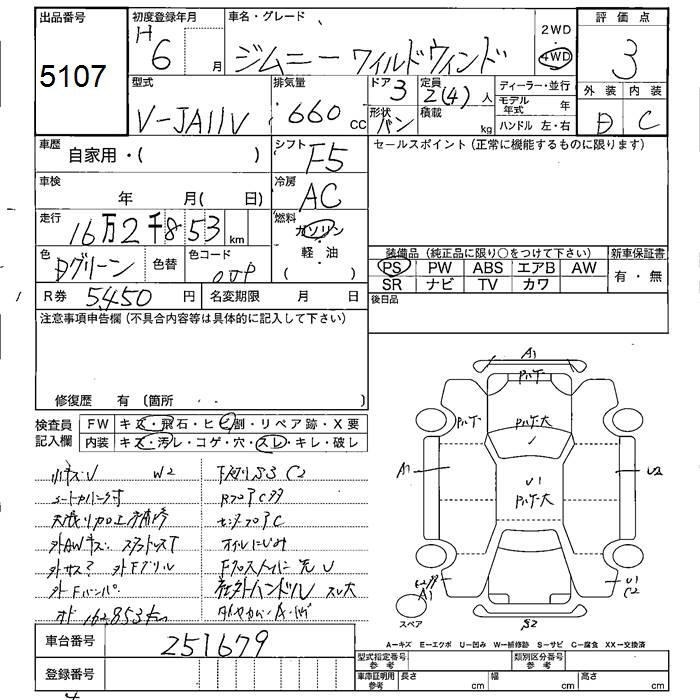 出品番号
5107
初度登録年月
H
6 月
車名・グレード
ジムニー ワイルドウィンド
2WD
4WD
評価点
3
外装 内装
D C
型式
V-JA11V
排気量
660 cc
ドア
3
定員
2(4) 人
形状
バン
積載
kg
ディーラー・並行
モデル年式 年
ハンドル 左・右
車歴
自家用・( )
シフト
F5
セールスポイント(正常に機能するものに限ります)
車検
年 月( 日)
冷房
AC
走行
16万2千853 km
燃料
ガソリン
・
軽・油
( )
色
Dグリーン
色替
色コード
0JP
装備品(純正品に限り○をつけて下さい)
PS PW ABS エアB AW
SR ナビ TV カワ
新車保証書
有・無
R券 5,450 円
名変期限 月 日
後日品
注意事項申告欄(不具合内容等は具体的に記入して下さい)
修復歴 有(箇所 )
検査員
記入欄
FW キズ・飛石・ヒビ割・リペア跡・X要
内装 キズ・汚レ・コゲ・穴・スレ・キレ・破レ
小キズ・U W2
シートカバー付
天張リ加工補修
外AWキズ スタッドレスT
外サス? 外Fグリル
外Fバンパ
オド 162853km
C2
オイルにじみ
社外ハンドル スレ大
A1
A1
U2
U1
U1
C2
A1
S2
スペア
A-キズ E-エクボ U-凹み W-補修跡 S-サビ C-腐食 XX-交換済
車台番号 251679
登録番号
型式指定番号
参考
類別区分番号
参考
車庫証明用
参考
長さ cm
幅 cm
高さ cm